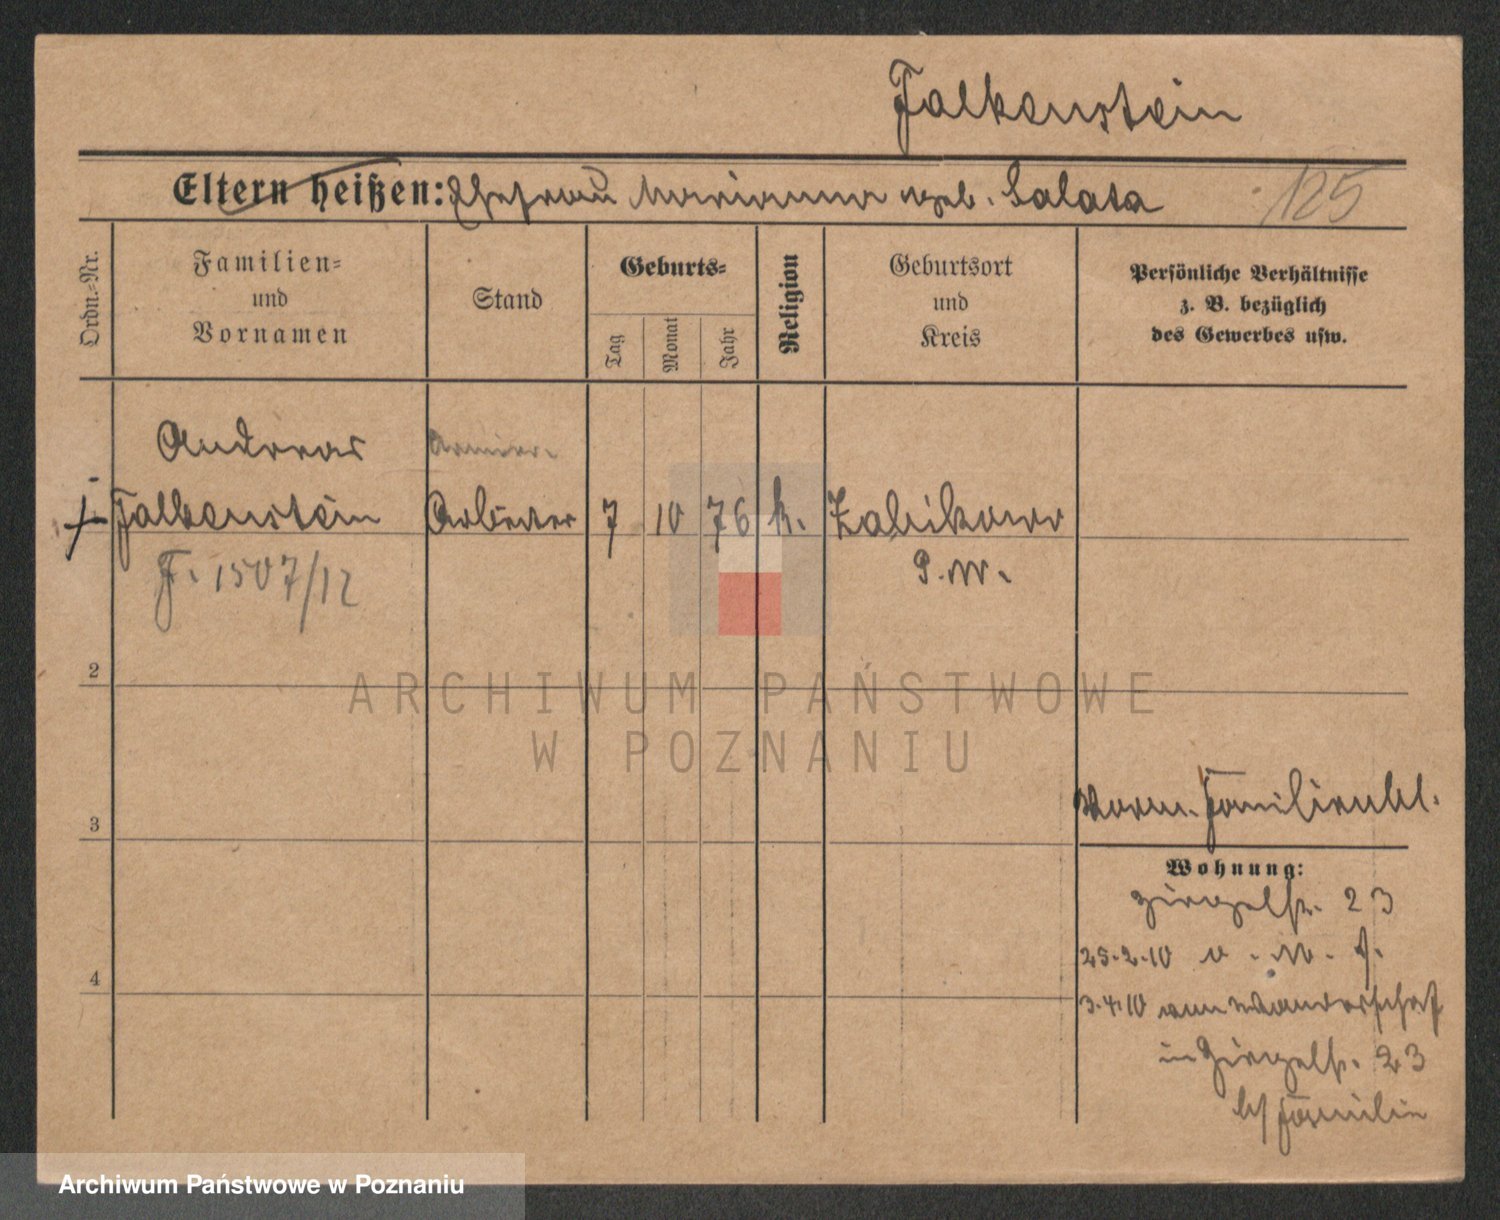 Falkenstein
Eltern heißen: Ehefrau Marianna geb. Salata
125
Ordn.-Nr.
Familien-
und
Vornamen
Stand
Geburts-
Tag
Monat
Jahr
Religion
Geburtsort
und
Kreis
Persönliche Verhältnisse
z. B. bezüglich
des Gewerbes usw.
Andreas
Falkenstein
Arbeiter
7
10
76
k.
Zabikowo
P.W.
F. 1507/12
2
3
4
Familienbl.
Wohnung:
Ziegelstr. 23
25.2.10 a. W.
3.4.10 von Wanderschaft
in Ziegelstr. 23
b/ Familie
ARCHIWUM PAŃSTWOWE
W POZNANIU
Archiwum Państwowe w Poznaniu